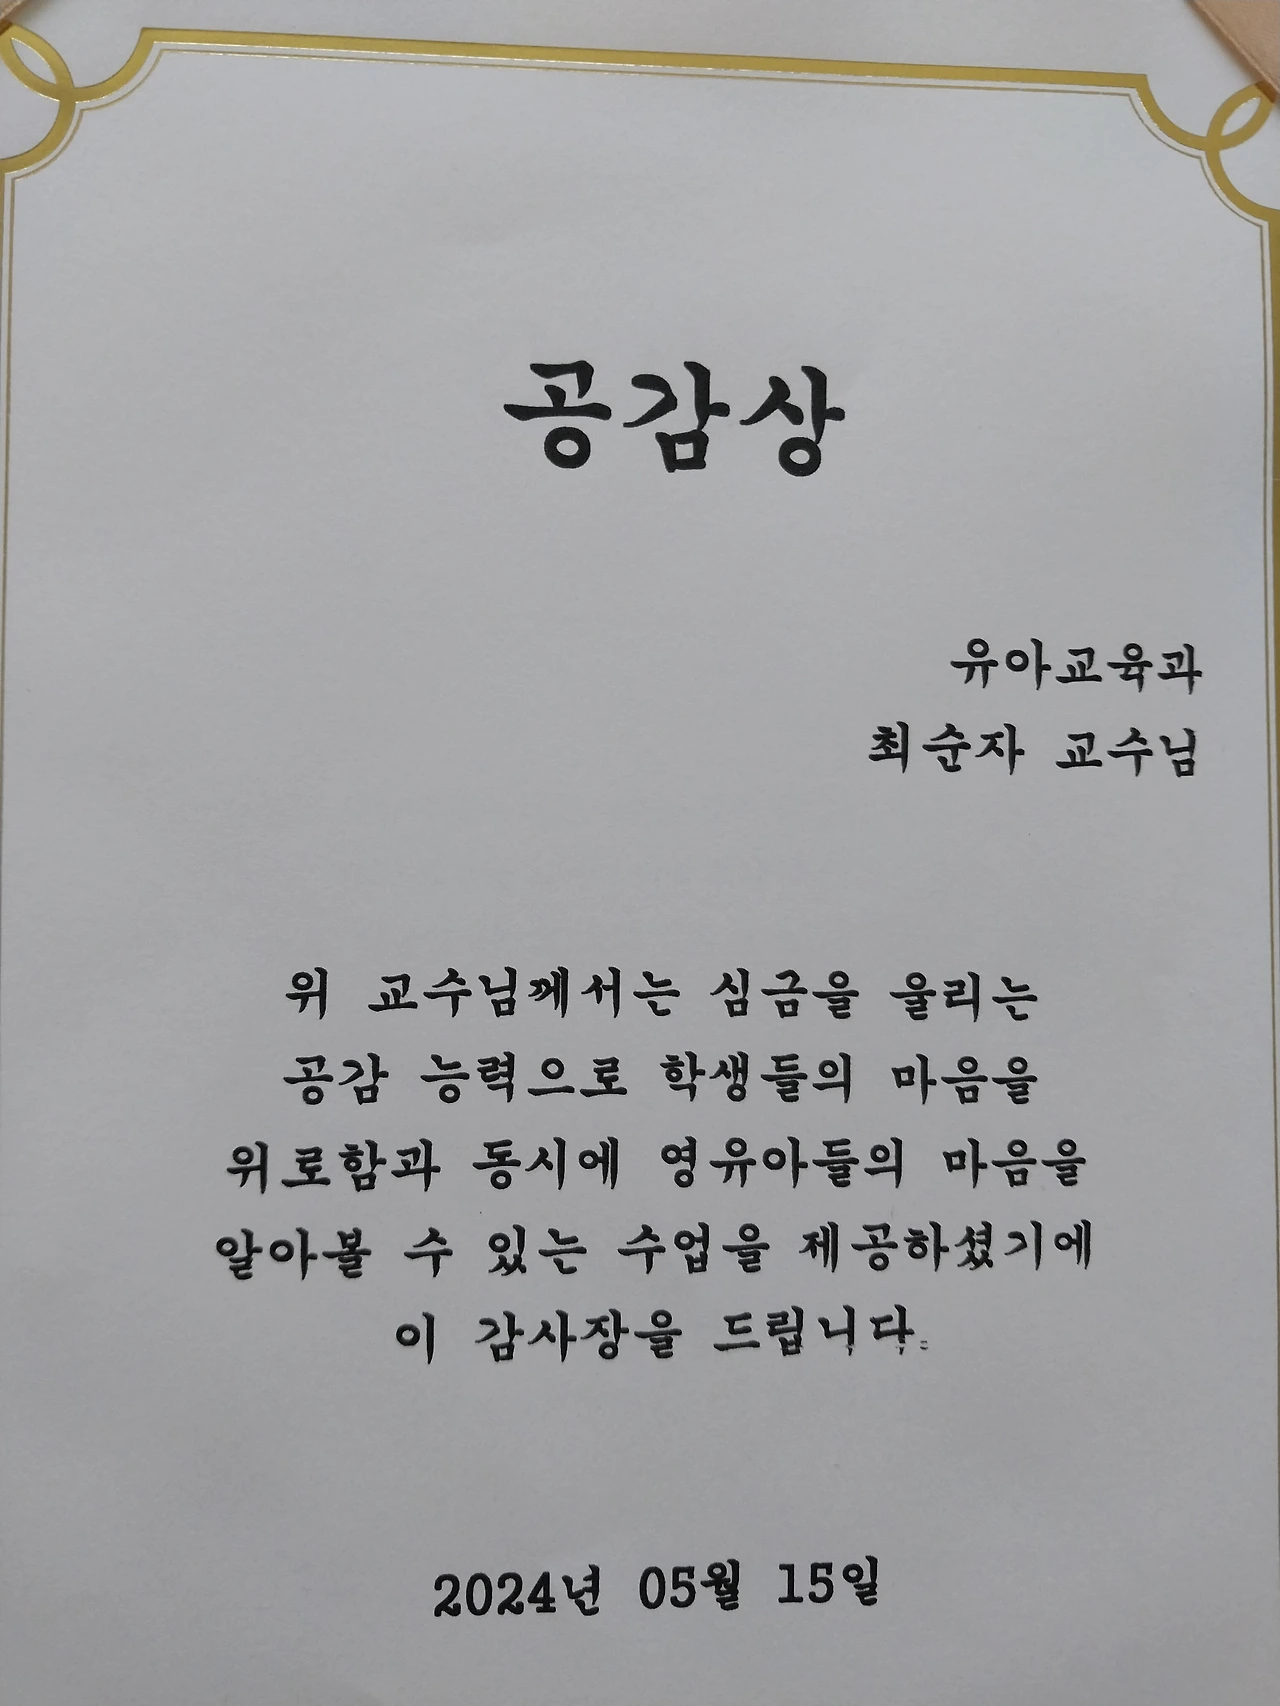 공감상
유아교육과
최순자 교수님
위 교수님께서는 심금을 울리는
공감 능력으로 학생들의 마음을
위로함과 동시에 영유아들의 마음을
알아볼 수 있는 수업을 제공하셨기에
이 감사장을 드립니다.
2024년 05월 15일